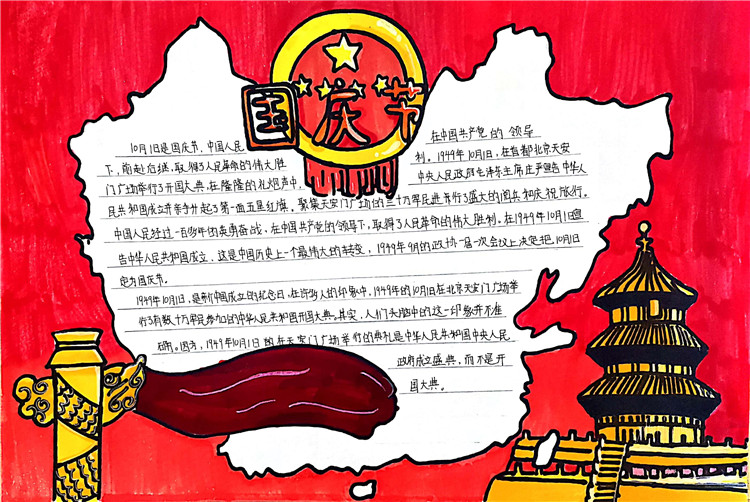 国庆节
10月1日是国庆节,中国人民 在中国共产党的领导
下,前赴后继,取得了人民革命的伟大胜 利。1949年10月1日,在首都北京天安
门广场举行了开国大典,在隆隆的礼炮声中, 中央人民政府毛泽东主席庄严宣告中华人
民共和国成立并亲手升起了第一面五星红旗。聚集天安门广场的三十万军民进行了盛大的阅兵和庆祝旅行。
中国人民经过一百多年的英勇奋战,在中国共产党的领导下,取得了人民革命的伟大胜利。在1949年10月1日宣
告中华人民共和国成立,这是中国历史上一个最伟大的转变,1949年9月的政协一届一次会议上决定把10月1日
定为国庆节。
1949年10月1日,是新中国成立的纪念日,在许多人的印象中,1949年的10月1日在北京天安门广场举
行了有数十万军民参加的中华人民共和国开国大典。其实,人们头脑中的这一印象并不准
确。因为,1949年10月1日的在天安门广场举行的典礼是中华人民共和国中央人民
政府成立盛典,而不是开
国大典。